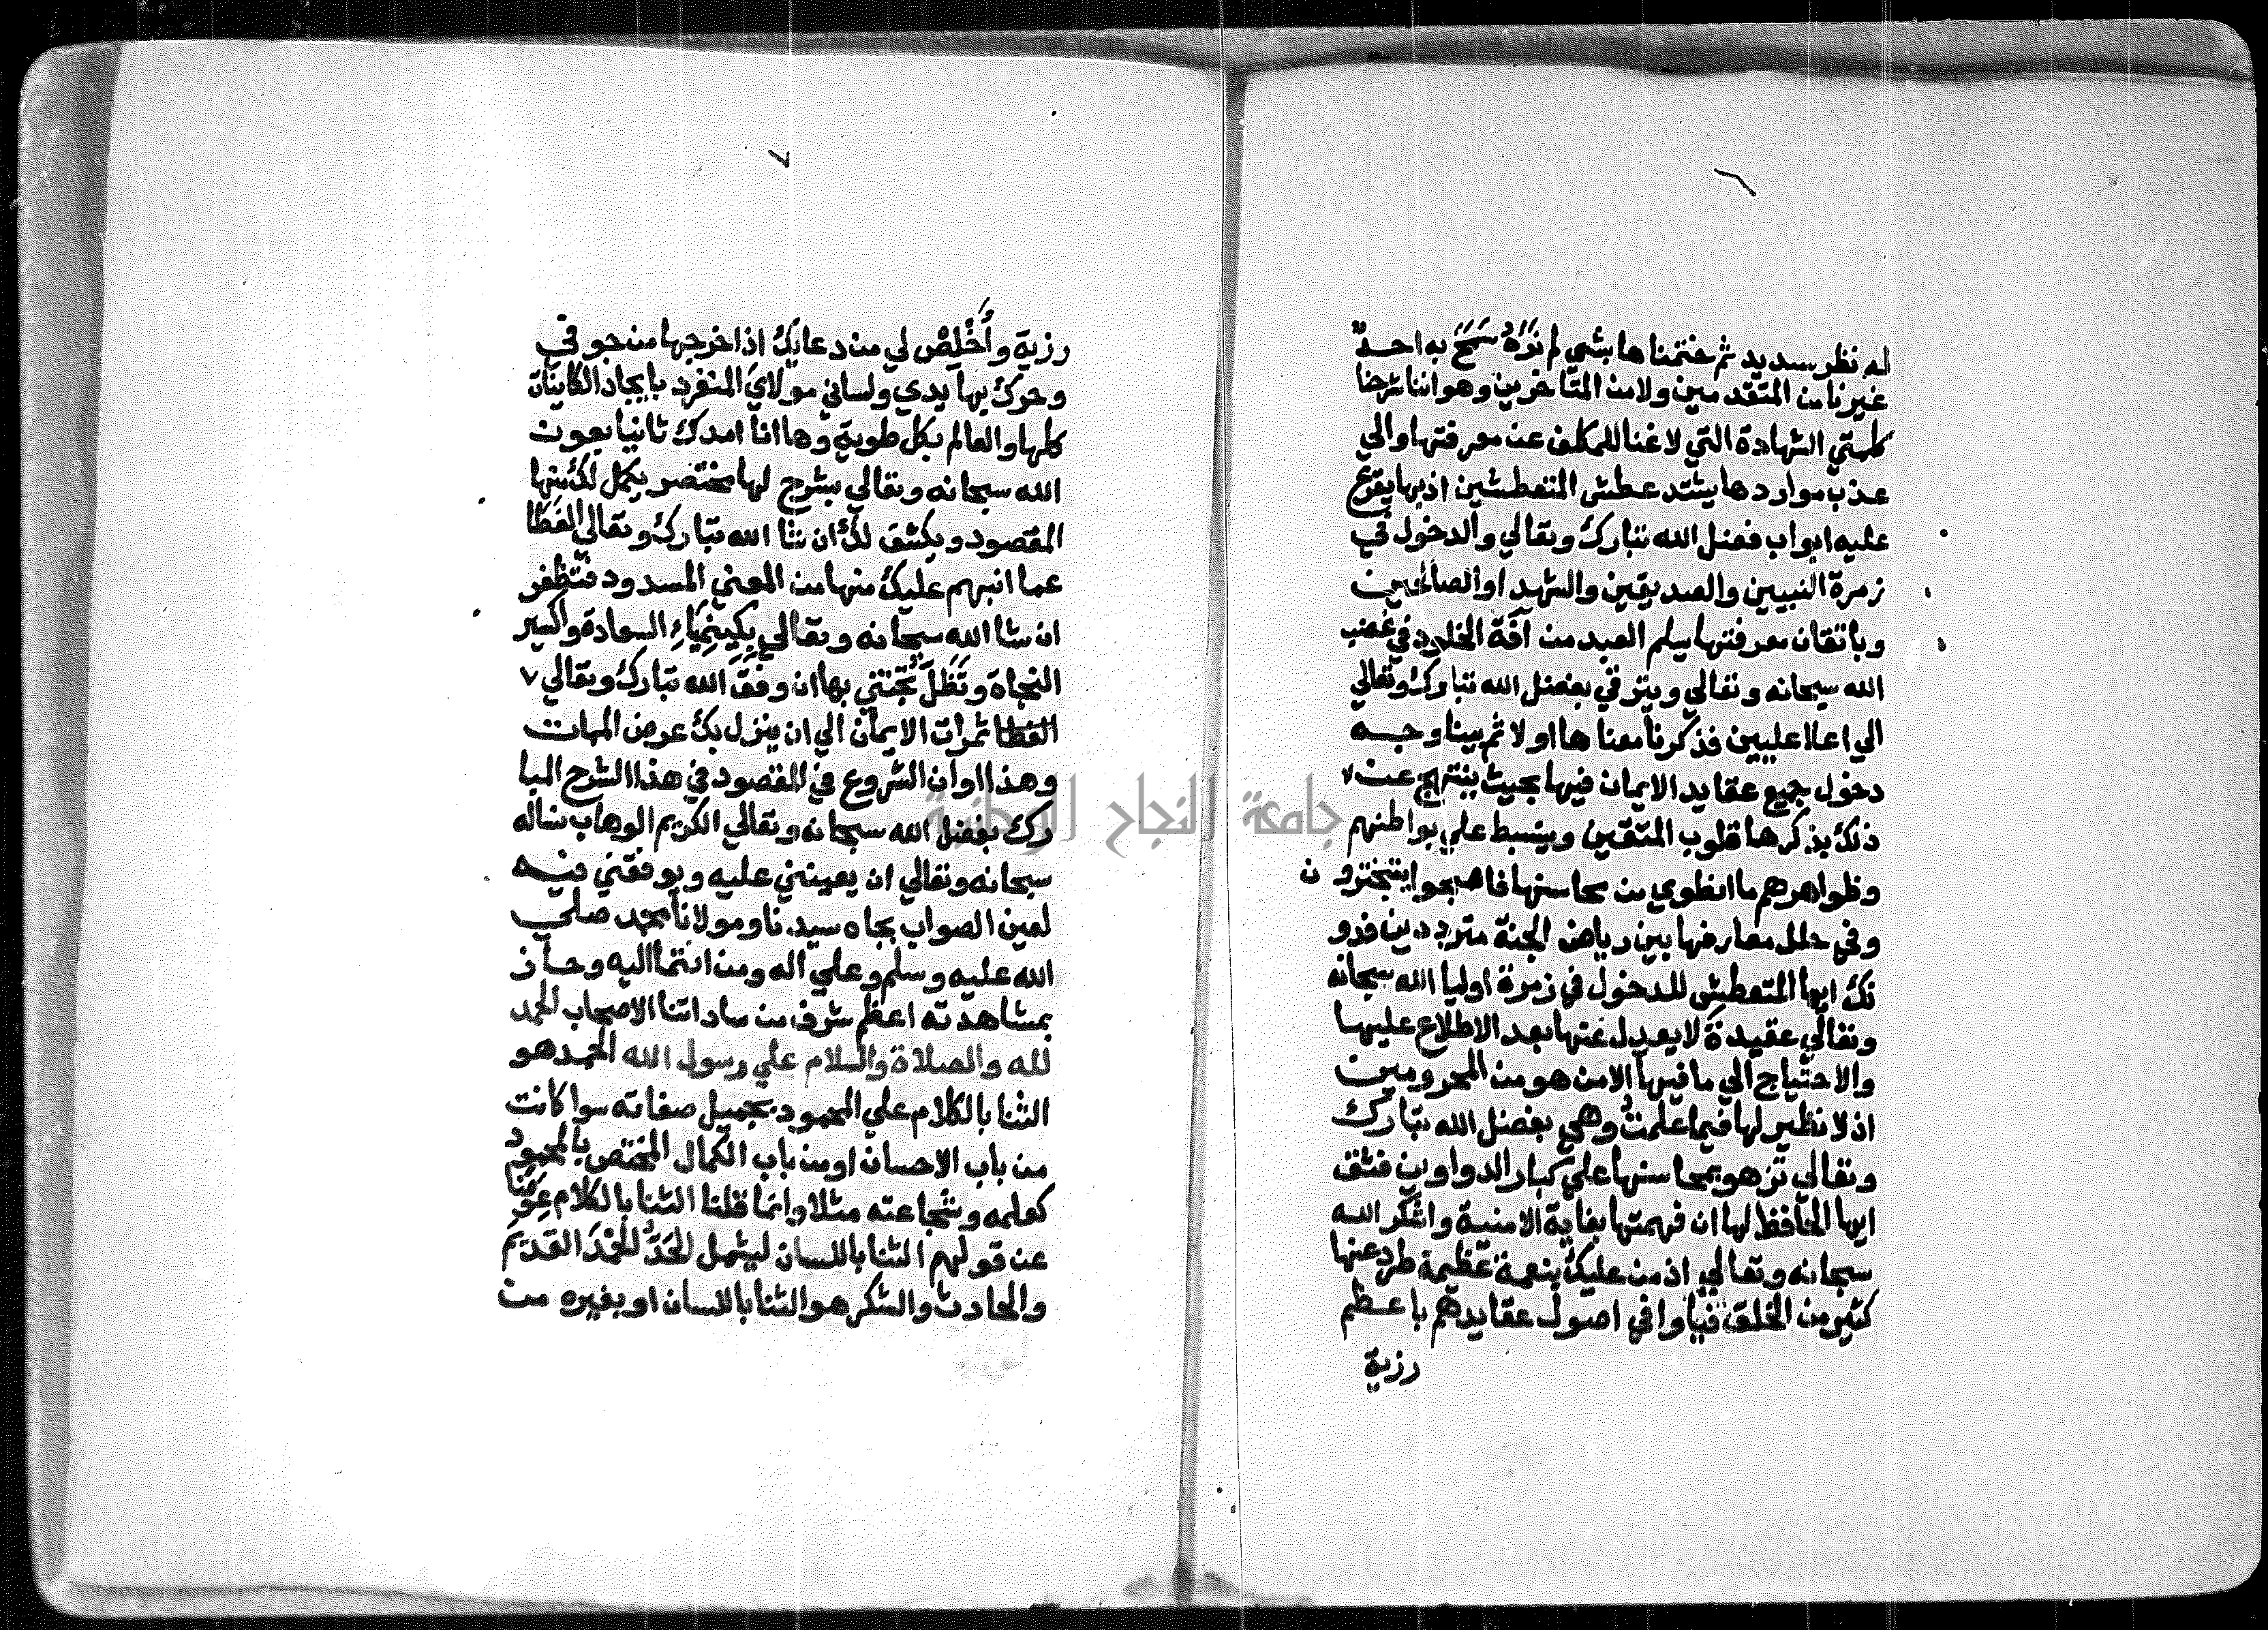 له نظر سديد ثم ختمناها بشي لم نَرَهُ سَمَحَ به احد
غيرنا من المتقدمين ولا من المتاخرين وهو اننا شرحنا
كلمتي الشهادة التي لا غنا للمكلف عن معرفتها والي
عذب مواردها يشتد عطش المتعطشين اذ بها يقرع
عليه ابواب فضل الله تبارك وتعالي والدخول في
زمرة النبيين والصديقين والشهدا والصالحين
وباتقان معرفتها يسلم العبد من افة الخلود في غضب
الله سبحانه وتعالي ويترقي بفضل الله تبارك وتعالي
الي اعلا عليين فذكرنا معناها اولا ثم بينا وجه
دخول جميع عقايد الايمان فيها بحيث يبتهج عن
ذلك بذكرها قلوب المتقين وينبسط علي بواطنهم
وظواهرهم ما انطوي من محاسنها فاصبحوا يتبخترون
وفي حلل معارفها بين رياض الجنة مترددين فدو
نك ايها المتعطش للدخول في زمرة اوليا الله سبحانه
وتعالي عقيدة لا يعدل عنها بعد الاطلاع عليها
والاحتياج الي ما فيها الا من هو من المحرومين
اذ لا نظير لها فيما علمت وهي بفضل الله تبارك
وتعالي تزهو بمحاسنها علي كبار الدواوين فثق
ايها الحافظ لها ان فهمتها بغاية الامنية واشكر الله
سبحانه وتعالي اذ من عليك بنعمة عظيمة طرد عنها
كثير من الخلق فباوا في اصول عقايدهم باعظم
رزية
٧
رزية وأَخْلِصْ لي من دعايك اذ اخرجها من جوفي
وحرك بها يدي ولساني مولاي المنفرد بايجاد الكاينات
كلها والعالم بكل طوية وها انا امدك ثانيا بعون
الله سبحانه وتعالي بشرح لها مختصر يكمل لك منها
المقصود ويكشف لك ان شا الله تبارك وتعالي الغطا
عما انبهم عليك منها من المعني المسدود فتظفر
ان شا الله سبحانه وتعالي بِكِيمْيَاءِ السعادة واكسير
النجاة وتَظَلّ تجتني بها ان وفق الله تبارك وتعالي
الغطا ثمرات الايمان الي ان ينزل بك عرض الممات
وهذا اوان الشروع في المقصود في هذا الشرح المبا
رك بفضل الله سبحانه وتعالي الكريم الوهاب نساله
سبحانه وتعالي ان يعينني عليه ويوفقني فيه
لعين الصواب بجاه سيدنا ومولانا محمد صلي
الله عليه وسلم وعلي اله ومن انتما اليه وحاز
بمشاهدته اعظم شرف من ساداتنا الاصحاب الحمد
لله والصلاة والسلام علي رسول الله الحمد هو
الثنا بالكلام علي المحمود بجميل صفاته سوا كانت
من باب الاحسان او من باب الكمال المختص بالمحمود
كعلمه وشجاعته مثلا وانما قلنا الثنا بالكلام عِوَضًا
عن قولهم الثنا باللسان ليشمل الحَدُّ الحَمْدَ القديم
والحادث والشكر هو الثنا باللسان او بغيره من
جامعة النجاح الوطنية